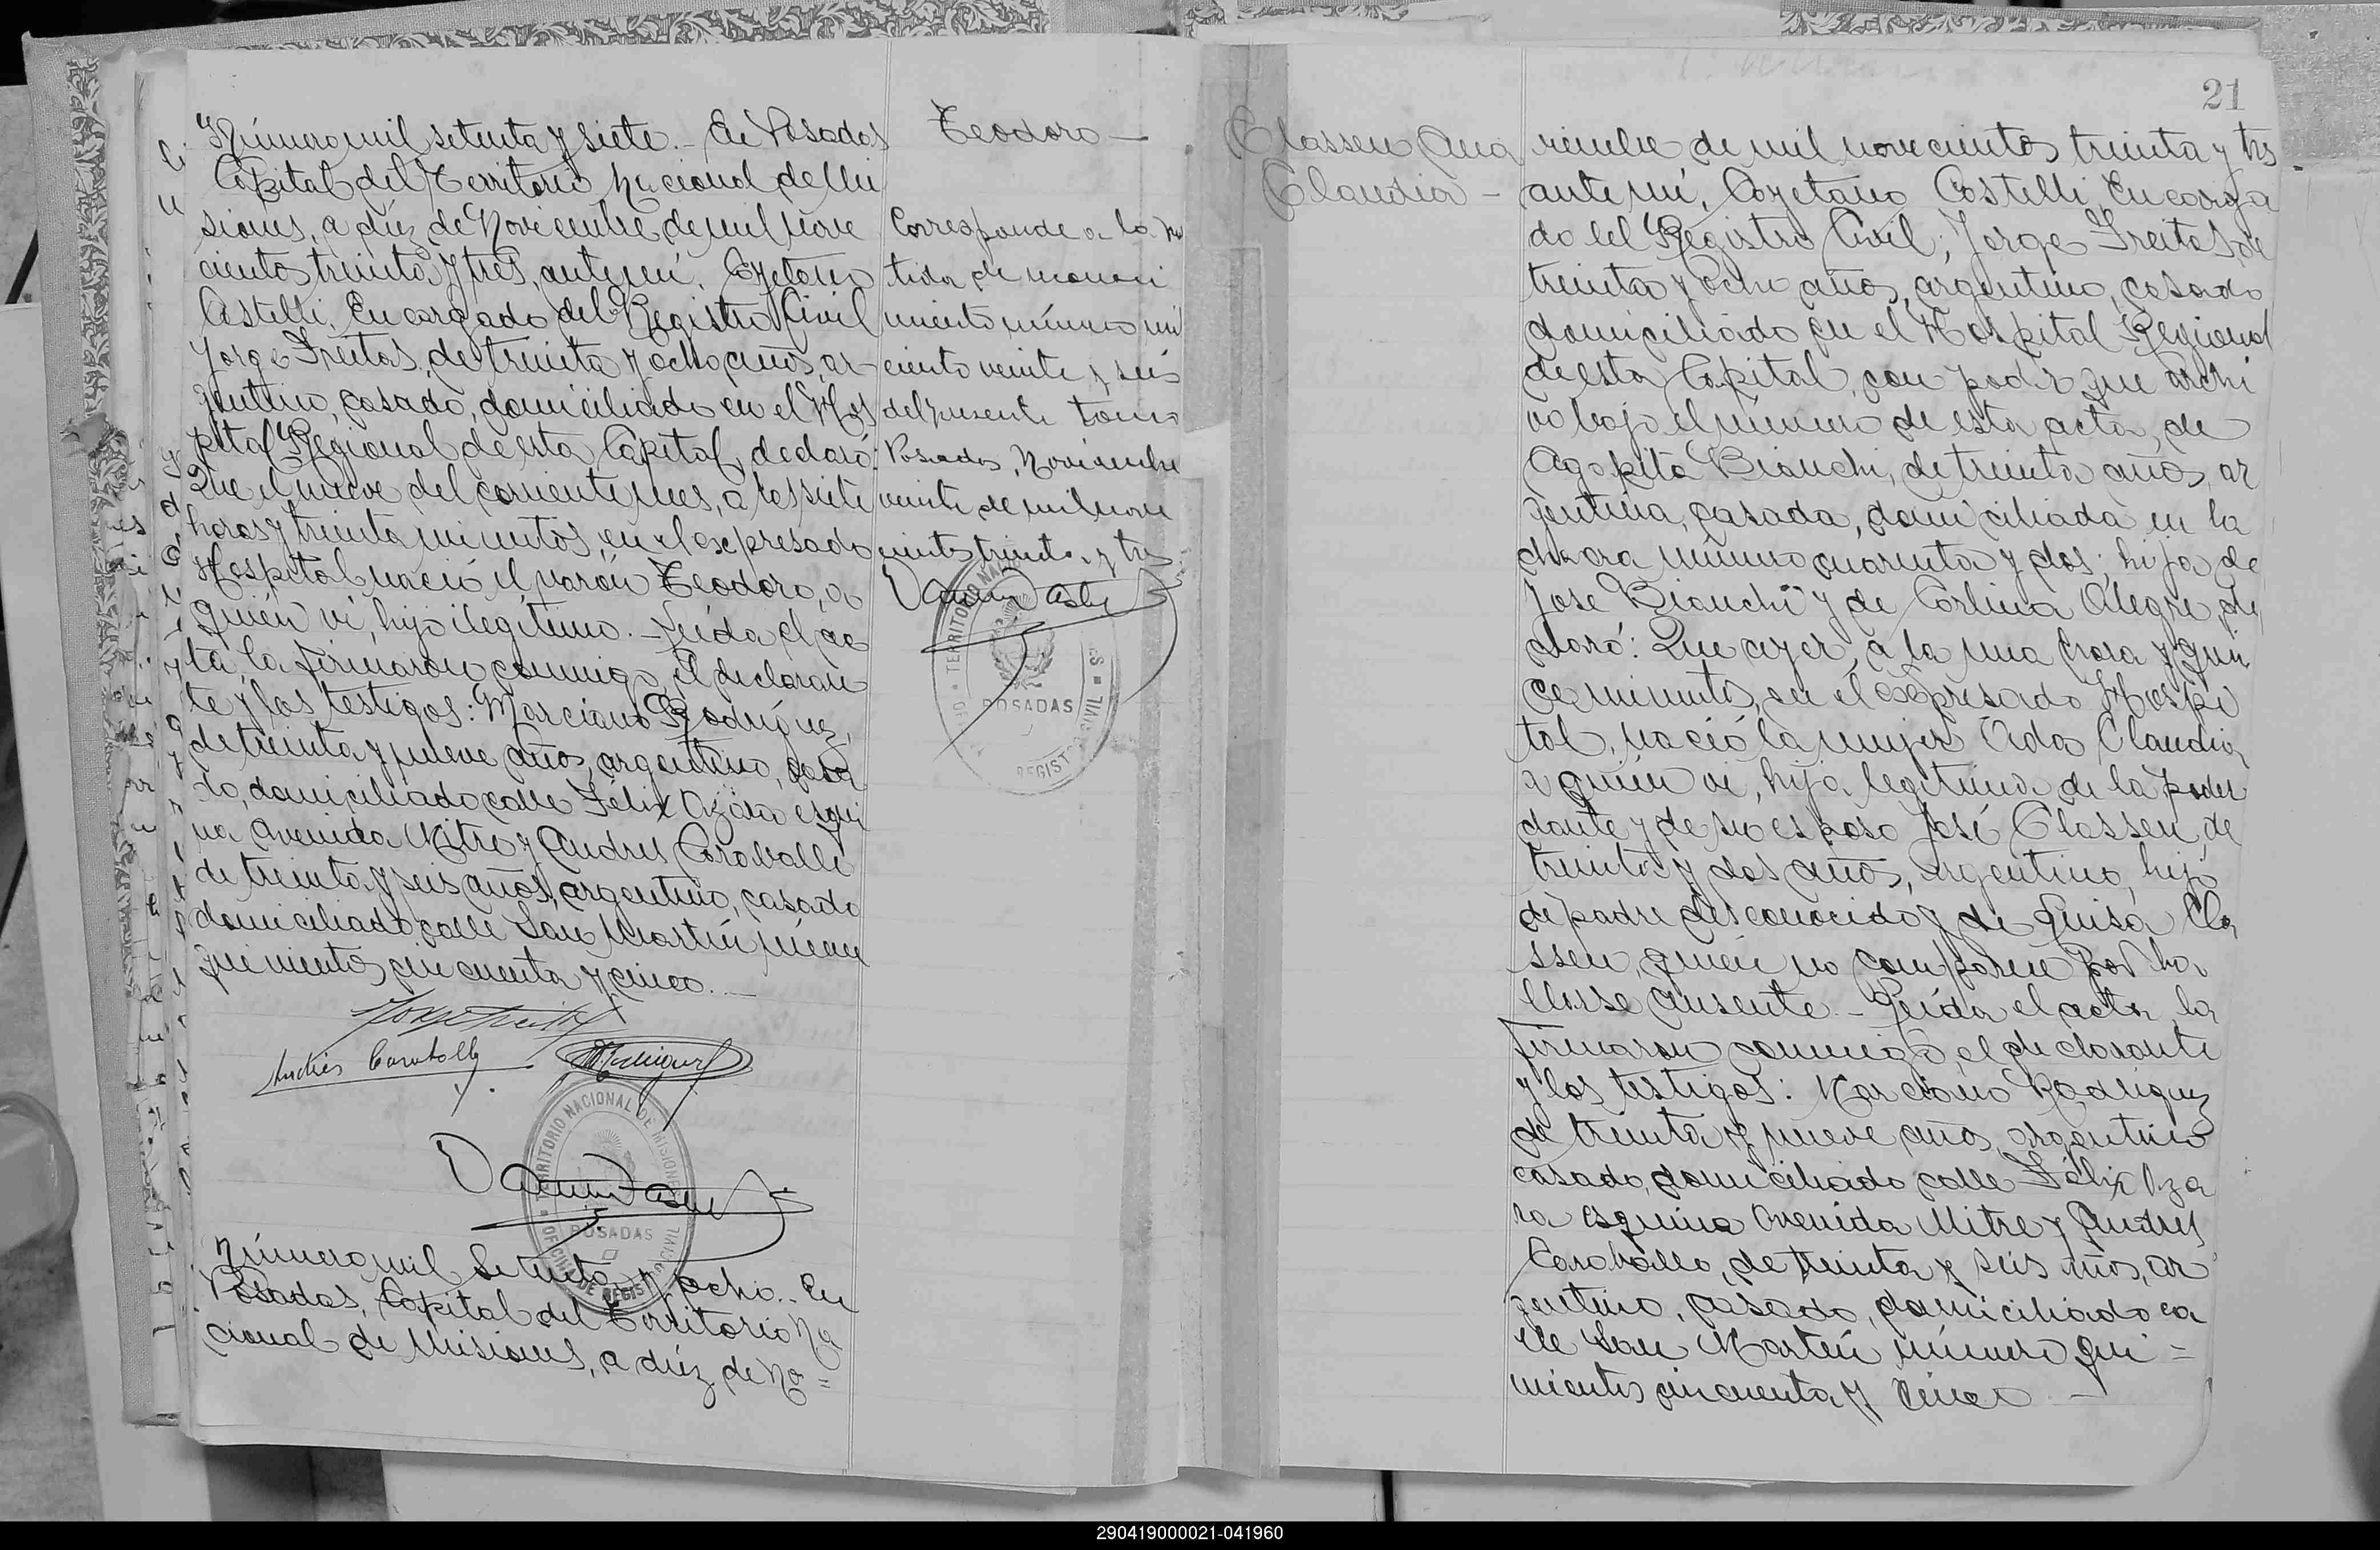 Número mil setenta y siete.- En Posadas
Capital del Territorio Nacional de Mi
siones, a diéz de Noviembre de mil nove
cientos treinta y tres, ante mí, Cayetano
Castelli, Encargado del Registro Civil
Jorge Freitas, de treinta y ocho años, ar-
gentino, casado, domiciliado en el Hos
pital Regional de esta Capital, declaró:
Que el nueve del corriente mes, a las siete
horas y treinta minutos, en el expresado
Hospital nació el varón Teodoro, a
quién ví, hijo ilegítimo.- Leída el ac
ta, la firmaron conmigo, el declaran
te y los testigos: Marciano Rodríguez,
de treinta y nueve años, argentino, casa
do, domiciliado calle Félix Azara esqui
na Avenida Mitre y Andres Caraballo
de treinta y seis años, argentino, casado
domiciliado calle San Martín número
quinientos cincuenta y cinco.-
Andrés Caraballo
TERRITORIO NACIONAL DE MISIONES
POSADAS
OFICINA DE REGISTRO CIVIL
Número mil setenta y ocho.- En
Posadas, Capital del Territorio Na
cional de Misiones, a diéz de No=
Teodoro-
Corresponde a la par
tida de
miento número mil
ciento veinte y seis
del presente tomo
Posadas, Noviembre
veinte de mil nove
cientos treinta y tres
TERRITORIO NACIONAL
POSADAS
REGISTRO CIVIL
21
Classen
Claudia -
viembre de mil novecientos treinta y tres
ante mí, Cayetano Castelli, Encarga
do del Registro Civil; Jorge Freitas, de
treinta y ocho años, argentino, casado
domiciliado en el Hospital Regional
de esta Capital, con poder que archi
vo bajo el número de esta acta, de
Agapita Bianchi, de treinta años, ar
gentina, casada, domiciliada en la
chacra número cuarenta y dos; hija de
Jose Bianchi y de Alegre, de
claró: Que ayer, a la una hora y quin
ce minutos, en el expresado Hospi
tal, nació la mujer Claudia
a quién ví, hija legítima de la poder
dante y de su esposo José Classen, de
treinta y dos años, argentino, hijo
de padre desconocido y de Luisa Cla
ssen, quién no comparece por ha
llarse ausente.- Leída el acta, la
firmaron conmigo, el declarante
y los testigos: Marciano Rodríguez
de treinta y nueve años, argentino
casado, domiciliado calle Félix Aza
ra esquina Avenida Mitre y Andres
Caraballo, de treinta y seis años, ar
gentino, casado, domiciliado ca
lle San Martín número qui=
nientos cincuenta y cinco.-
290419000021-041960